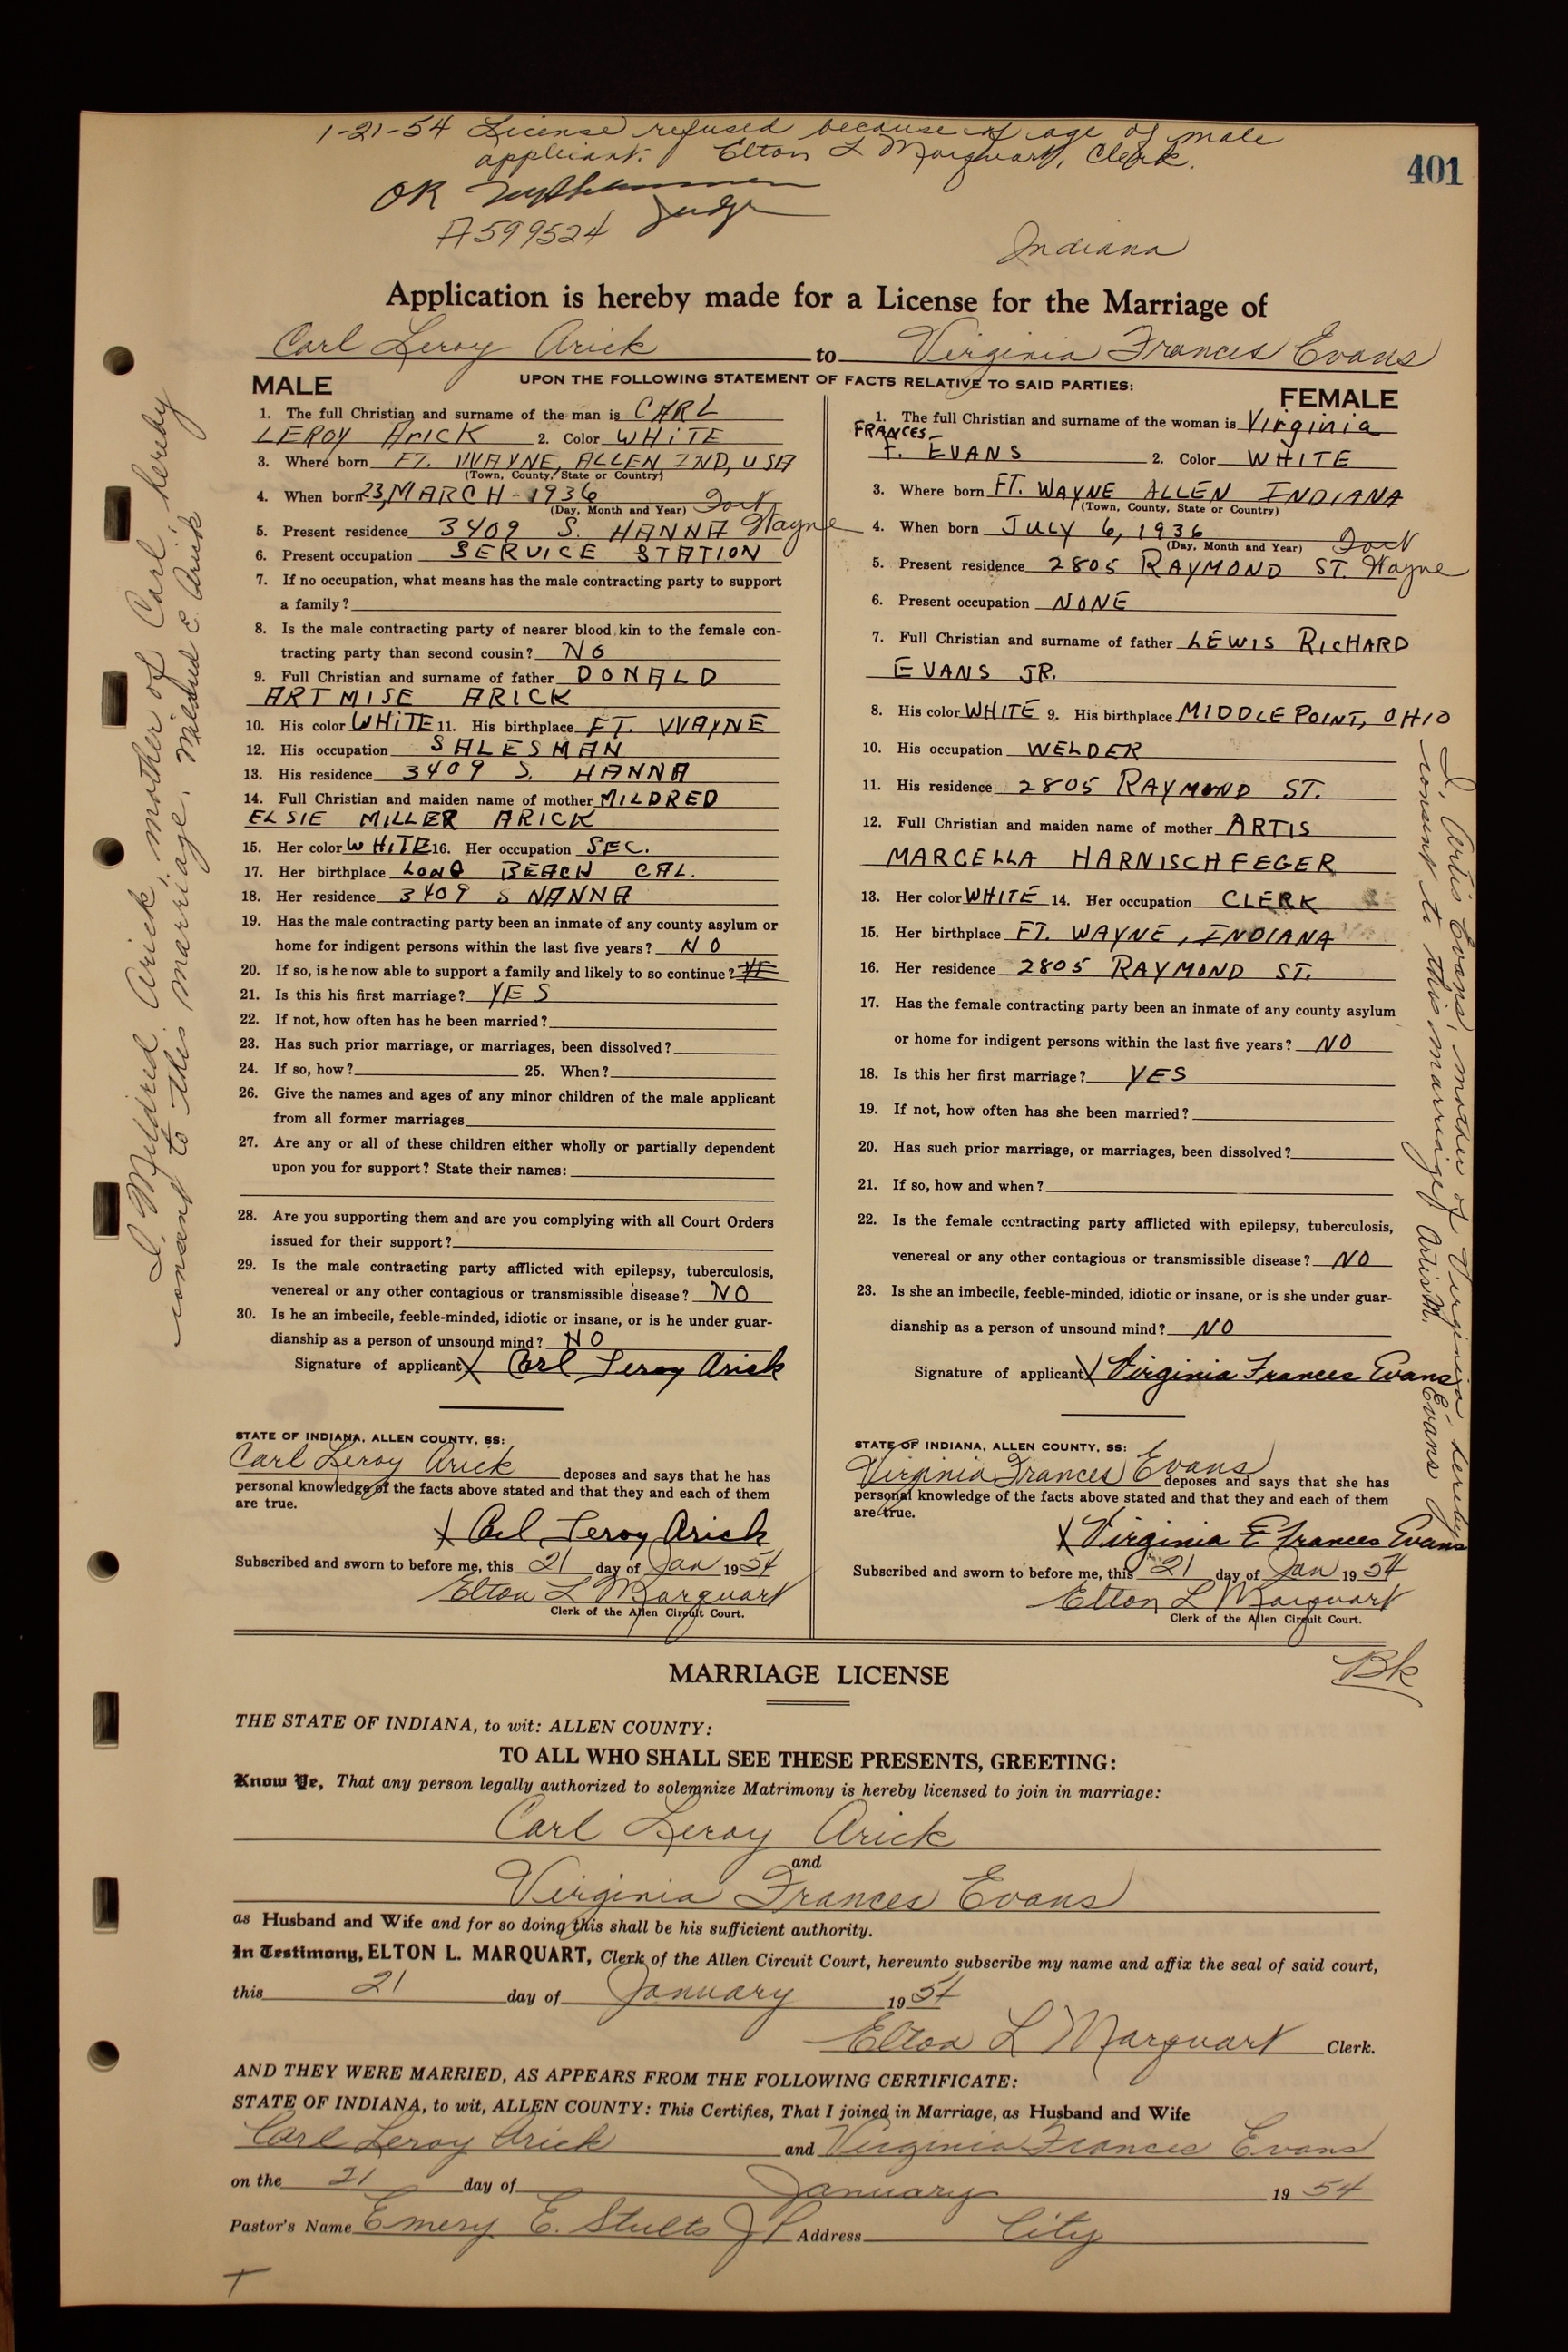 1-21-54 License refused because of age of male
applicant. Elton L Marquart, Clerk.
401
OK
Judge
A599524
Indiana
Application is hereby made for a License for the Marriage of
Carl Leroy Arick to Virginia Frances Evans
UPON THE FOLLOWING STATEMENT OF FACTS RELATIVE TO SAID PARTIES:
MALE
1. The full Christian and surname of the man is CARL
LEROY ArICK 2. Color WHITE
3. Where born FT. WAYNE, ALLEN IND, USA
(Town, County, State or Country)
4. When born 23, MARCH - 1936
(Day, Month and Year) Fort
5. Present residence 3409 S. HANNA Wayne
6. Present occupation SERVICE STATION
7. If no occupation, what means has the male contracting party to support
a family?
8. Is the male contracting party of nearer blood kin to the female con-
tracting party than second cousin? NO
9. Full Christian and surname of father DONALD
ARTMISE ARICK
10. His color WHITE 11. His birthplace FT. WAYNE
12. His occupation SALESMAN
13. His residence 3409 S. HANNA
14. Full Christian and maiden name of mother MILDRED
ELSIE MILLER ARICK
15. Her color WHITE 16. Her occupation SEC.
17. Her birthplace LONG BEACH CAL.
18. Her residence 3409 S NANNA
19. Has the male contracting party been an inmate of any county asylum or
home for indigent persons within the last five years? NO
20. If so, is he now able to support a family and likely to so continue? YE
21. Is this his first marriage? YES
22. If not, how often has he been married?
23. Has such prior marriage, or marriages, been dissolved?
24. If so, how? 25. When?
26. Give the names and ages of any minor children of the male applicant
from all former marriages
27. Are any or all of these children either wholly or partially dependent
upon you for support? State their names:
28. Are you supporting them and are you complying with all Court Orders
issued for their support?
29. Is the male contracting party afflicted with epilepsy, tuberculosis,
venereal or any other contagious or transmissible disease? NO
30. Is he an imbecile, feeble-minded, idiotic or insane, or is he under guar-
dianship as a person of unsound mind? NO
Signature of applicant X Carl Leroy Arick
STATE OF INDIANA, ALLEN COUNTY, SS:
Carl Leroy Arick deposes and says that he has
personal knowledge of the facts above stated and that they and each of them
are true.
X Carl Leroy Arick
Subscribed and sworn to before me, this 21 day of Jan 1954
Elton L Marquart
Clerk of the Allen Circuit Court.
I, Mildred Arick, mother of Carl, hereby
consent to this marriage. Mildred E. Arick
FEMALE
1. The full Christian and surname of the woman is Virginia
FRANCES
F. EVANS 2. Color WHITE
3. Where born FT. WAYNE ALLEN INDIANA
(Town, County, State or Country)
4. When born JULY 6, 1936
(Day, Month and Year) Fort
5. Present residence 2805 RAYMOND ST. Wayne
6. Present occupation NONE
7. Full Christian and surname of father LEWIS RICHARD
EVANS JR.
8. His color WHITE 9. His birthplace MIDDLE POINT, OHIO
10. His occupation WELDER
11. His residence 2805 RAYMOND ST.
12. Full Christian and maiden name of mother ARTIS
MARCELLA HARNISCHFEGER
13. Her color WHITE 14. Her occupation CLERK
15. Her birthplace FT. WAYNE, INDIANA
16. Her residence 2805 RAYMOND ST.
17. Has the female contracting party been an inmate of any county asylum
or home for indigent persons within the last five years? NO
18. Is this her first marriage? YES
19. If not, how often has she been married?
20. Has such prior marriage, or marriages, been dissolved?
21. If so, how and when?
22. Is the female contracting party afflicted with epilepsy, tuberculosis,
venereal or any other contagious or transmissible disease? NO
23. Is she an imbecile, feeble-minded, idiotic or insane, or is she under guar-
dianship as a person of unsound mind? NO
Signature of applicant X Virginia Frances Evans
STATE OF INDIANA, ALLEN COUNTY, SS:
Virginia Frances Evans deposes and says that she has
personal knowledge of the facts above stated and that they and each of them
are true.
X Virginia F Frances Evans
Subscribed and sworn to before me, this 21 day of Jan 1954
Elton L Marquart
Clerk of the Allen Circuit Court.
I, Artis Evans, mother of Virginia, hereby
consent to this marriage. Artis M. Evans
Bk
MARRIAGE LICENSE
THE STATE OF INDIANA, to wit: ALLEN COUNTY:
TO ALL WHO SHALL SEE THESE PRESENTS, GREETING:
Know Ye, That any person legally authorized to solemnize Matrimony is hereby licensed to join in marriage:
Carl Leroy Arick
and
Virginia Frances Evans
as Husband and Wife and for so doing this shall be his sufficient authority.
In Testimony, ELTON L. MARQUART, Clerk of the Allen Circuit Court, hereunto subscribe my name and affix the seal of said court,
this 21 day of January 1954
Elton L Marquart Clerk.
AND THEY WERE MARRIED, AS APPEARS FROM THE FOLLOWING CERTIFICATE:
STATE OF INDIANA, to wit, ALLEN COUNTY: This Certifies, That I joined in Marriage, as Husband and Wife
Carl Leroy Arick and Virginia Frances Evans
on the 21 day of January 1954
Pastor's Name Emery E. Stults JP Address City
T